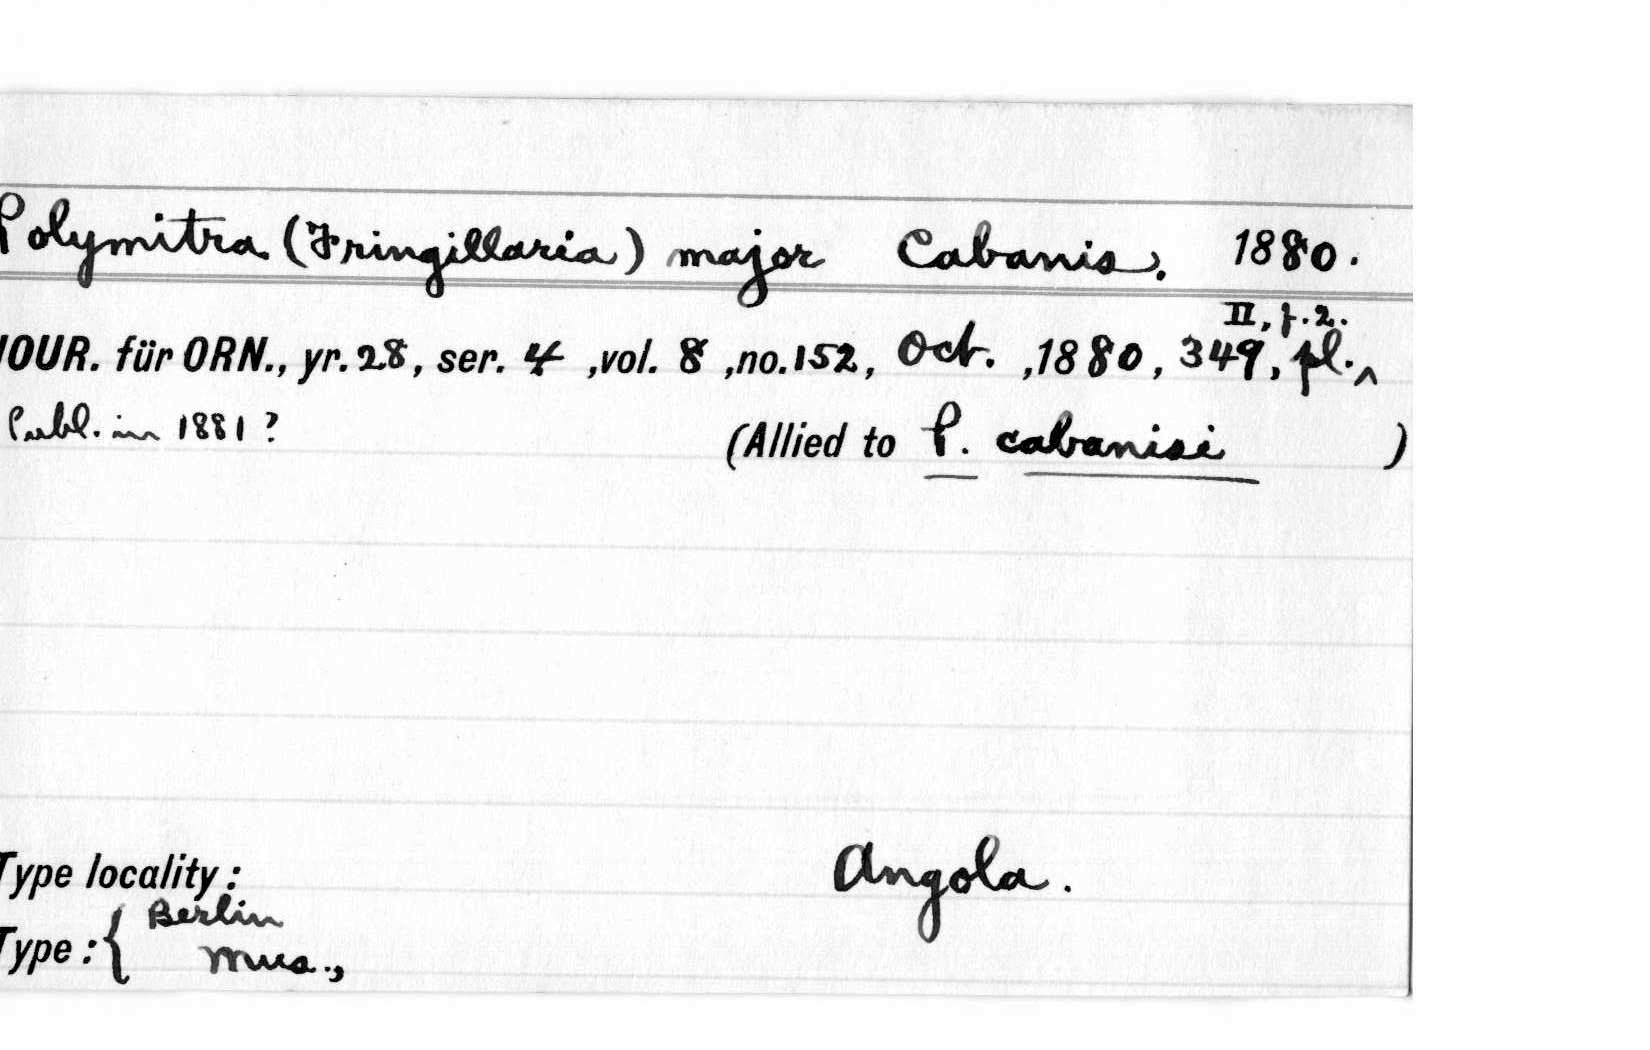 Polymitra (Fringillaria) major Cabanis. 1880.
II, f.2.
JOUR. für ORN., yr.28, ser. 4 ,vol. 8 ,no.152, Oct. ,1880, 349, pl.^
Publ. in 1881?
(Allied to P. cabanisi )
Type locality: Angola.
Type:{ Berlin
Mus.,